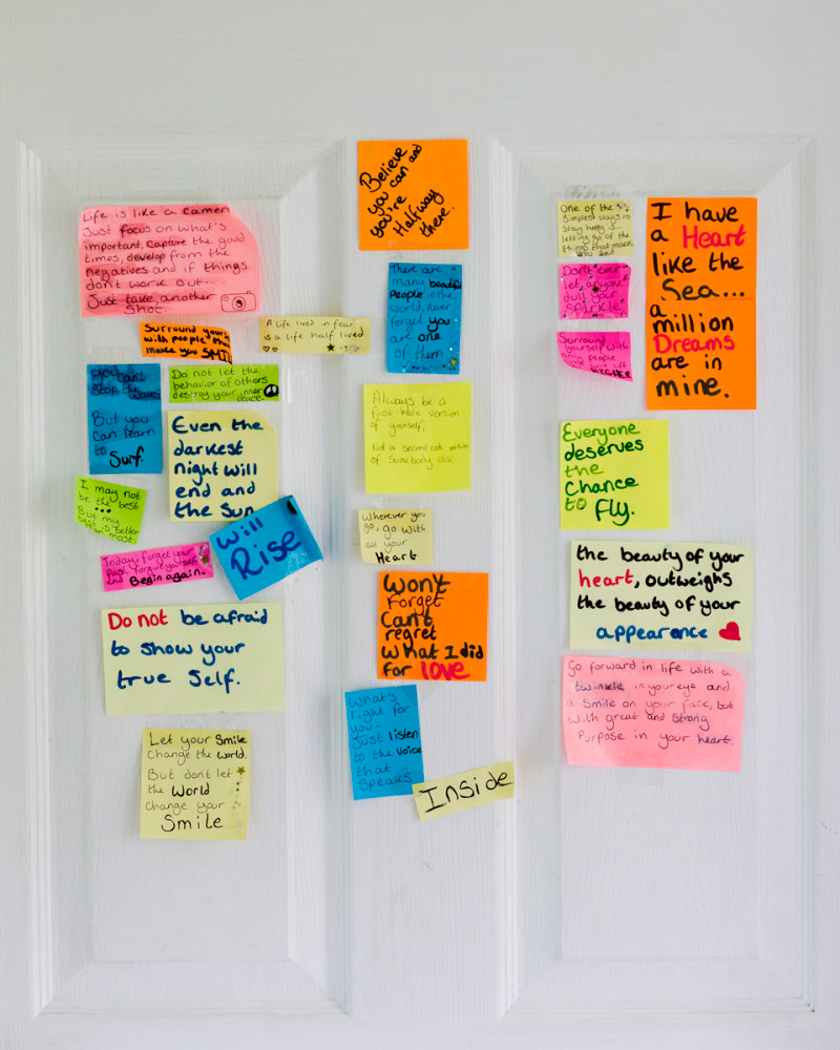 Life is like a camera
Just focus on what's
important, capture the good
times, develop from the
negatives and if things
don't work out...
Just take another
Shot.
Surround your
with people
make you SMIL
A life lived in fear
is a life half lived
you can't
Stop the waves
But you
Can learn
to
Surf.
Do not let the
behavior of others
destroy your inner
peace.
Even the
darkest
night will
end and
the Sun
Will
Rise
I may not
be the best
...
But my
best is better
than most
Today, forget your
Past, forgive yourself
and Begin again.
Do not be afraid
to show your
true Self.
Let your Smile
Change the world,
But don't let
the World
change your
Smile
Believe
you can and
you're
Halfway
there.
There are
many beautiful
People in the
world, never
forget you
are one
of them
Always be a
first-rate version
of yourself,
Not a second rate version
of Somebody else
Wherever you
go, go with
all your
Heart
Won't
Forget
Can't
regret
What I did
for love
What's
right for
you-
Just listen
to the Voice
that
Speaks
Inside
One of the
Simplest ways to
Stay happy is...
letting go of the
things that make
you sad
Don't ever
let anyone
dull your
Sparkle
Surround
yourself with
only people
lift
HIGHER
I have
a Heart
like the
Sea...
a
million
Dreams
are in
mine.
Everyone
deserves
the
Chance
to Fly.
the beauty of your
heart, outweighs
the beauty of your
appearance
Go forward in life with a
twinkle in your eye and
a Smile on your face, but
With great and Strong
Purpose in your heart.